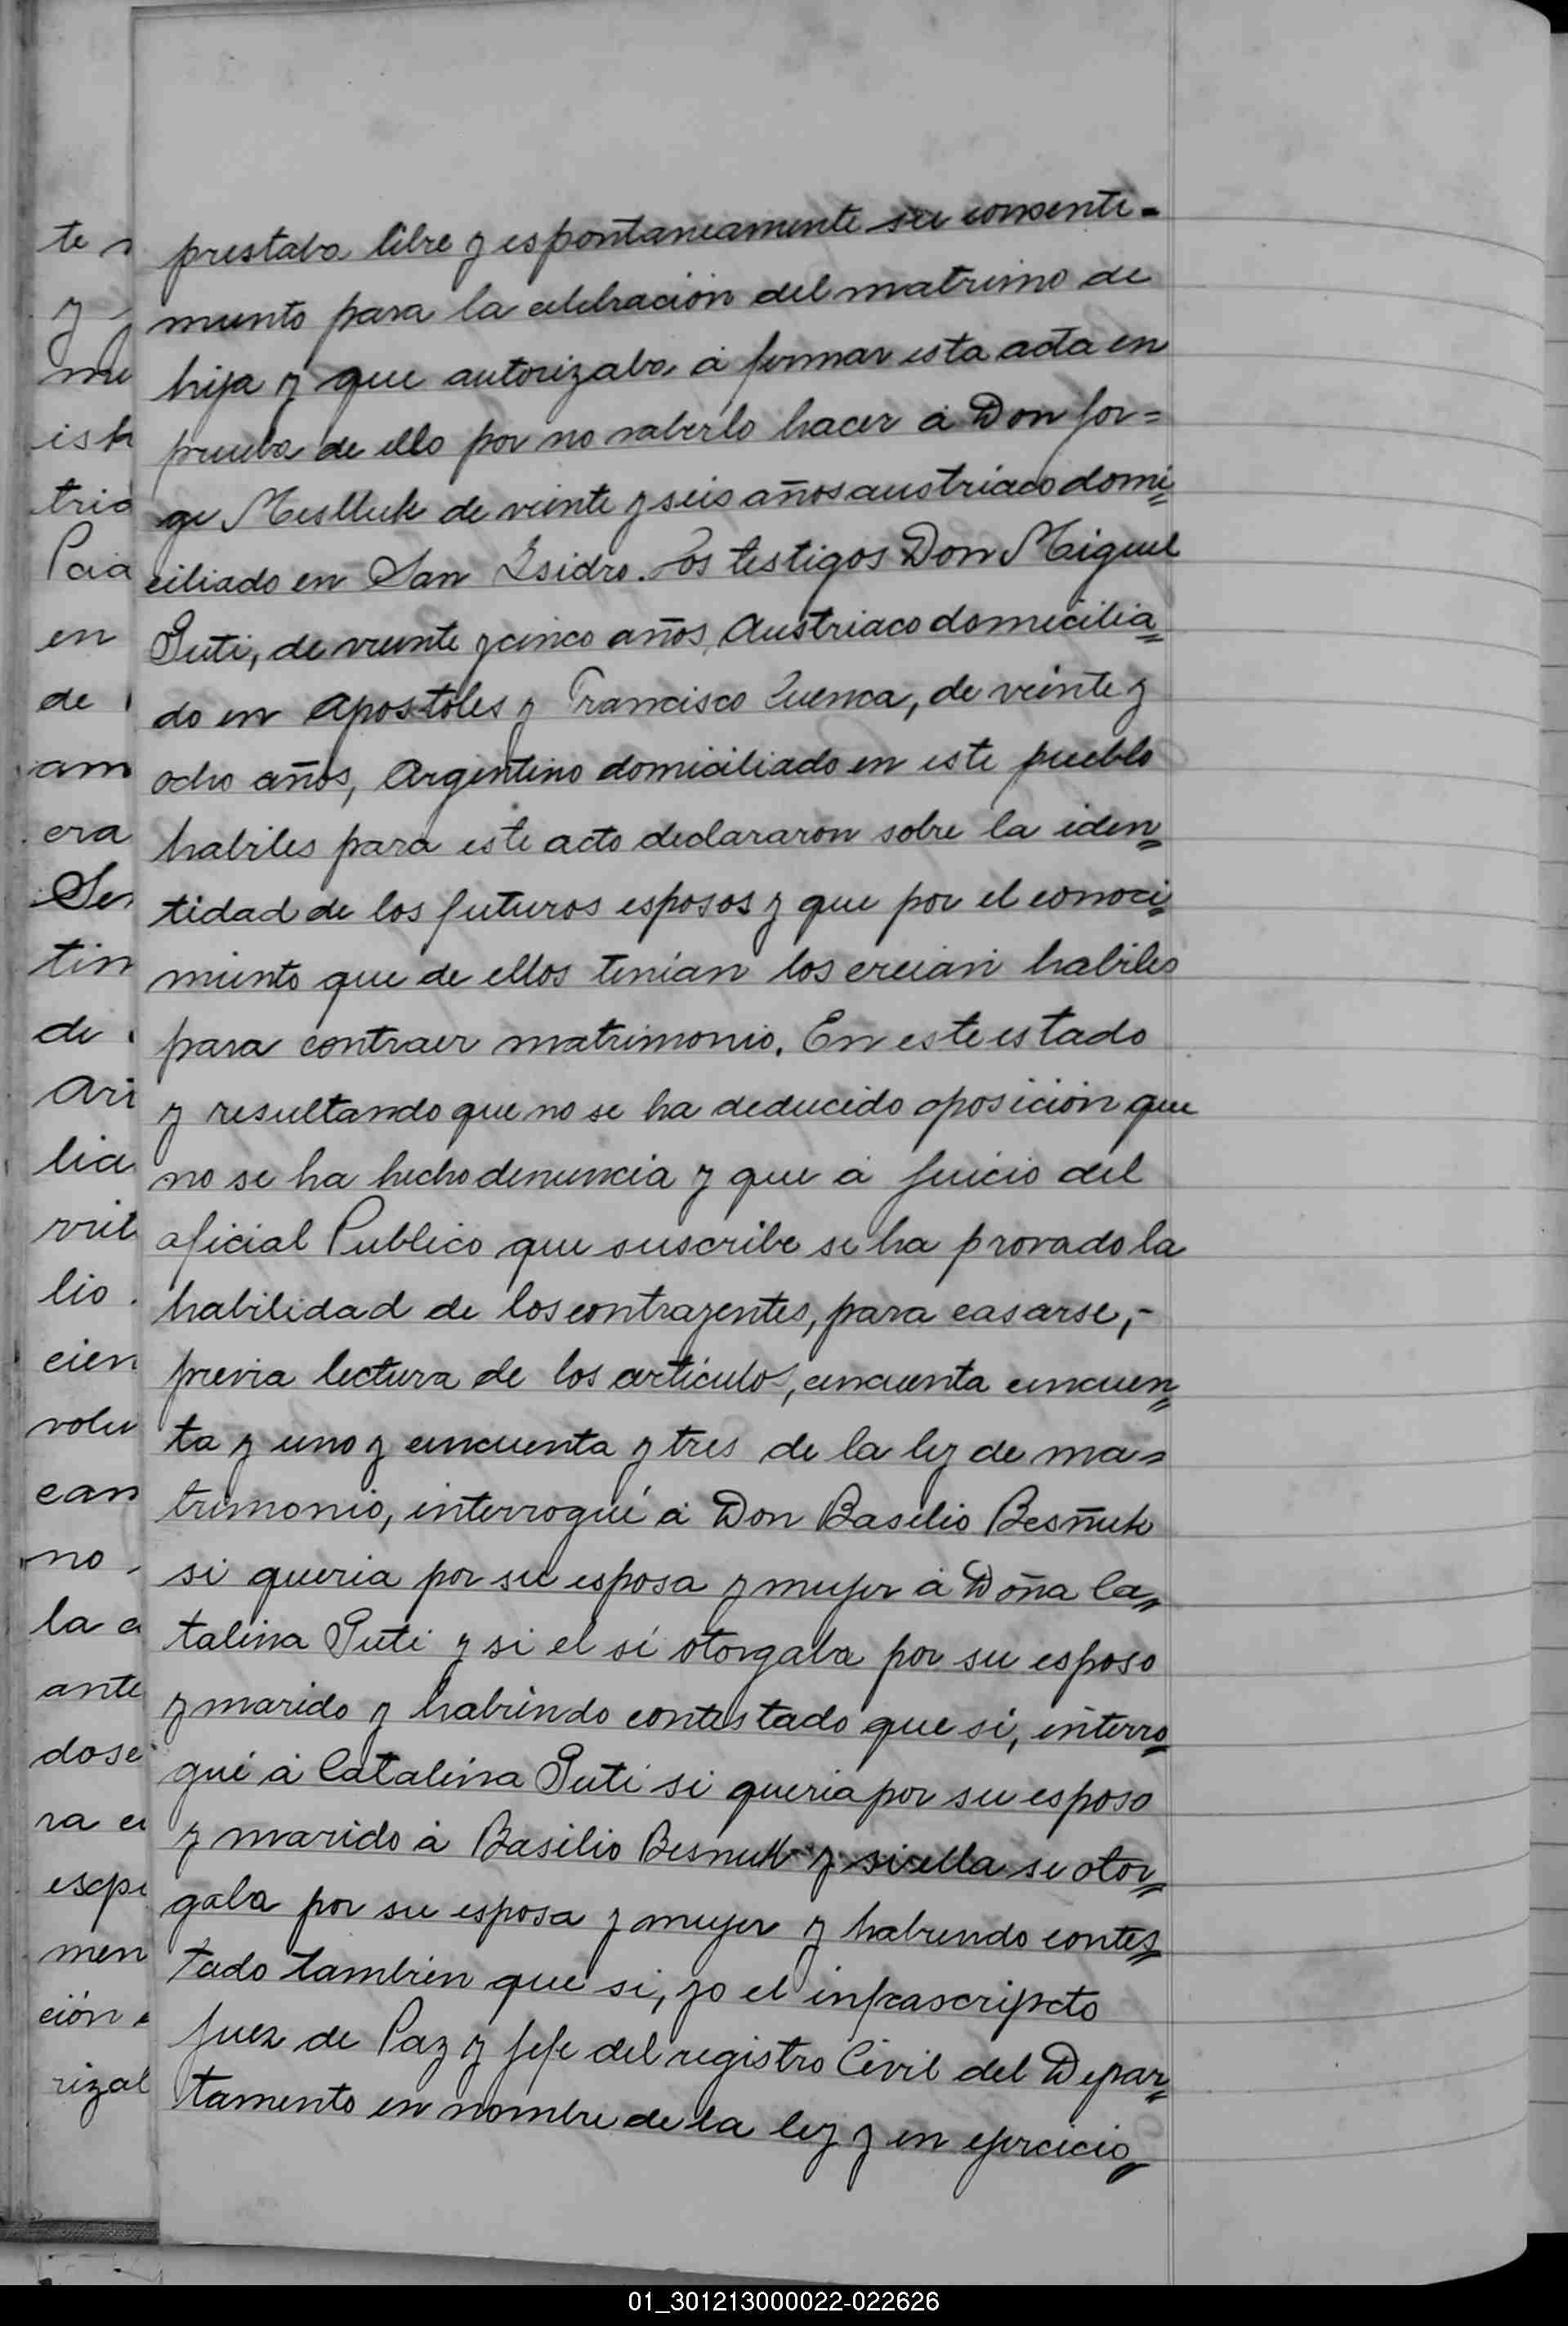 te
prestaba libre y espontaneamente su consenti-
miento para la celebración del matrimo de
hija y que autorizaba á firmar esta acta en
prueba de ello por no saberlo hacer á Don Jor=
ge Meslluk de veinte y seis años austriaco domi=
ciliado en San Isidro. Los testigos Don Miguel
Puti, de veinte y cinco años, Austriaco domicilia=
do en Apostoles y Francisco Cuenca, de veinte y
ocho años, Argentino domiciliado en este pueblo
habiles para este acto declararon sobre la iden=
tidad de los futuros esposos y que por el conoci=
miento que de ellos tenian los creian habiles
para contraer matrimonio. En este estado
y resultando que no se ha deducido oposición que
no se ha hecho denuncia y que á juicio del
oficial Publico que suscribe se ha provado la
habilidad de los contrayentes, para casarse,-
previa lectura de los articulos, cincuenta cincuen=
ta y uno y cincuenta y tres de la ley de ma=
trimonio, interrogué á Don Basilio Besñuk
si queria por su esposa y mujer á Doña Ca=
talina Puti y si el sí otorgaba por su esposo
y marido y habiendo contestado que si, interro=
gué á Catalina Puti si queria por su esposo
y marido á Basilio Besnuk y si ella se otor=
gaba por su esposa y mujer y habiendo contes=
tado tambien que si, yo el infrascripcto
Juez de Paz y Jefe del registro Civil del Depar=
tamento en nombre de la ley y en ejercicio
01_301213000022-022626